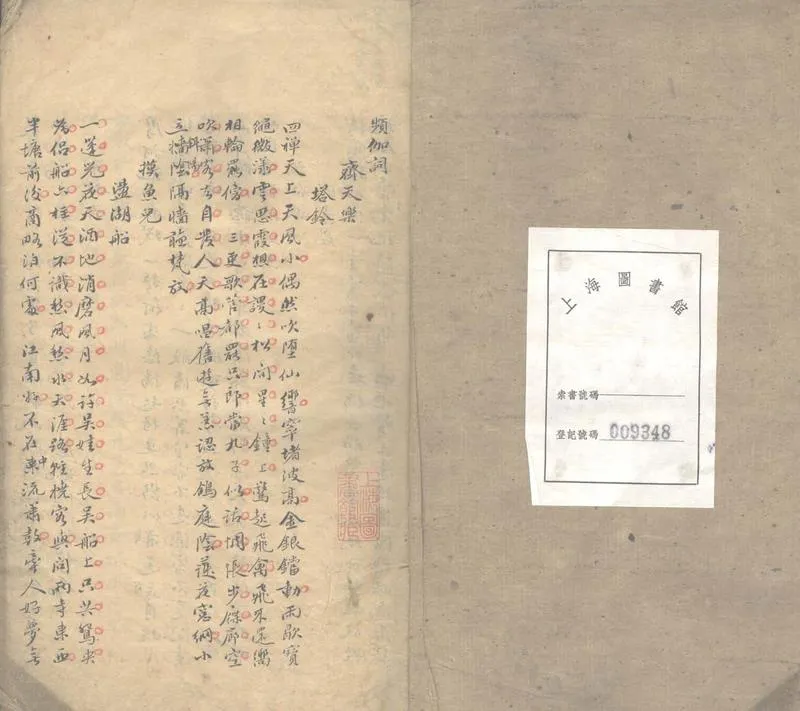 上海圖書館
索書號碼
登記號碼 009348
頻伽詞
齊天樂
塔鈴
四禪天上天風小偶然吹墮仙響窣堵波高金銀鐺動雨歇寶
繩微漾雲思霞想在謖〻松間星〻鐘上驚起飛禽飛不還嚮
相輪罷傍 三更歌管都罷只郎當九子似話惆悵步屧廊空
吹簫客去自發人天高唱舊遊無恙認放鴿庭陰護花窗網小
立牆陰隔牆聽梵放
摸魚兒
盪湖船
一篷兒夜天酒地消磨風月如許吳娃生長吳船上只共鴛央
為侶船六柱從不識愁風愁水天涯路輕橈容與問兩寺東西
半塘前後商略泊何處 江南好不在中流簫鼓牽人好夢無